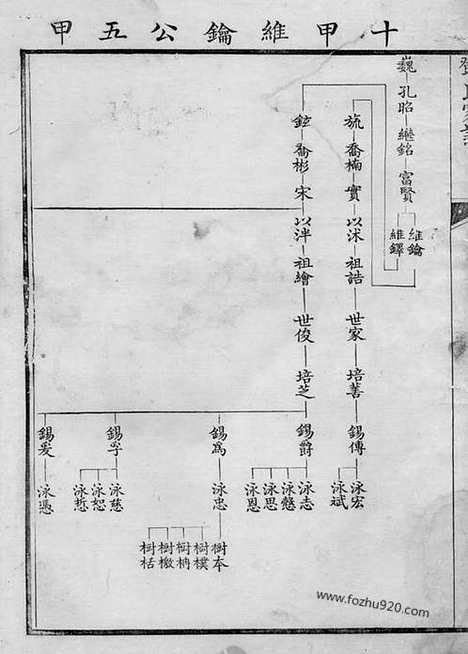 十甲維鑰公五甲
巍 孔昭 繼銘 富賢
維鑰
維鐸
旒 喬楠 實 以沭 祖誥 世家 培善 錫傳
泳宏
泳斌
鉉 喬彬 宋 以泮 祖繪 世俊 培芝 錫爵
泳志
泳慇
泳思
泳恩
錫為 泳忠
樹本
樹樸
樹柟
樹檄
樹栝
錫孚
泳慈
泳恕
泳哲
錫爰 泳憑
www.fozhu920.com